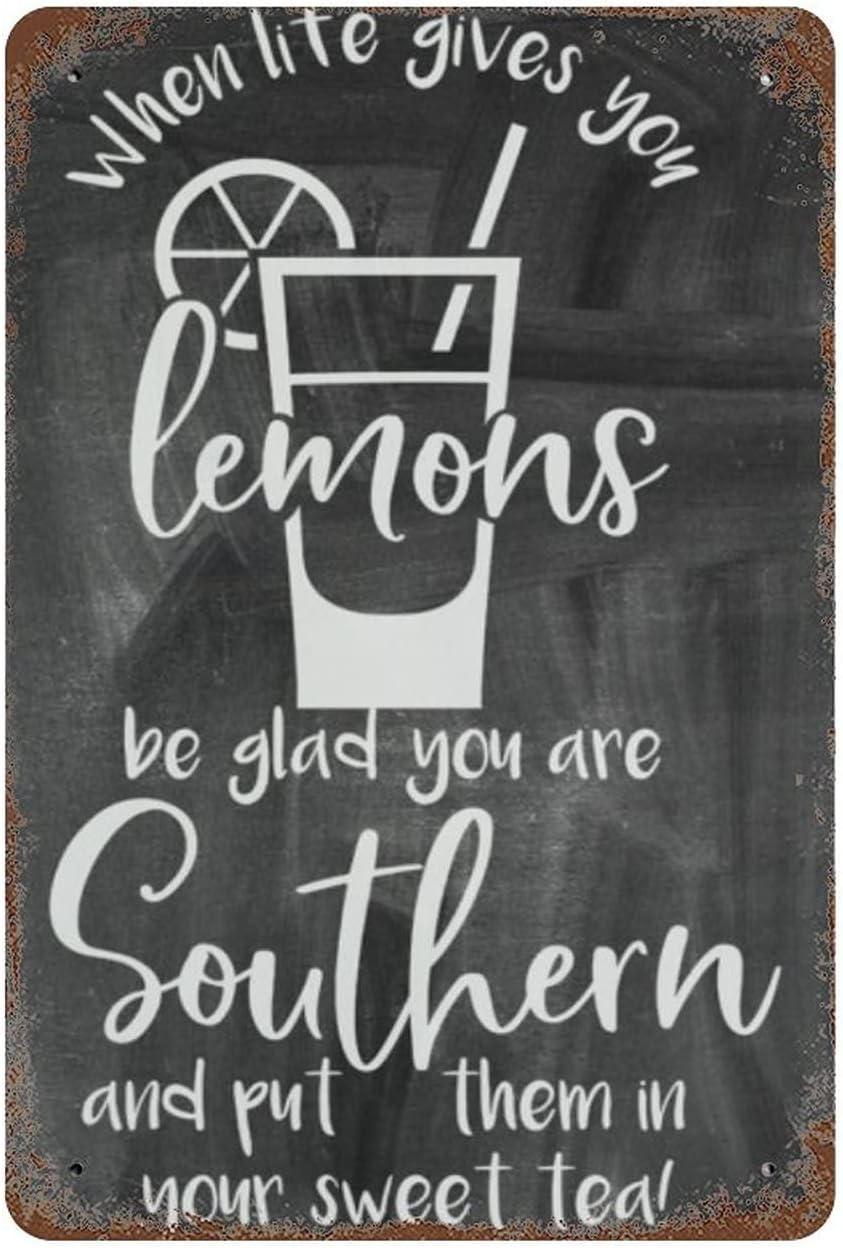 When life gives you
lemons
be glad you are
Southern
and put them in
your sweet tea!